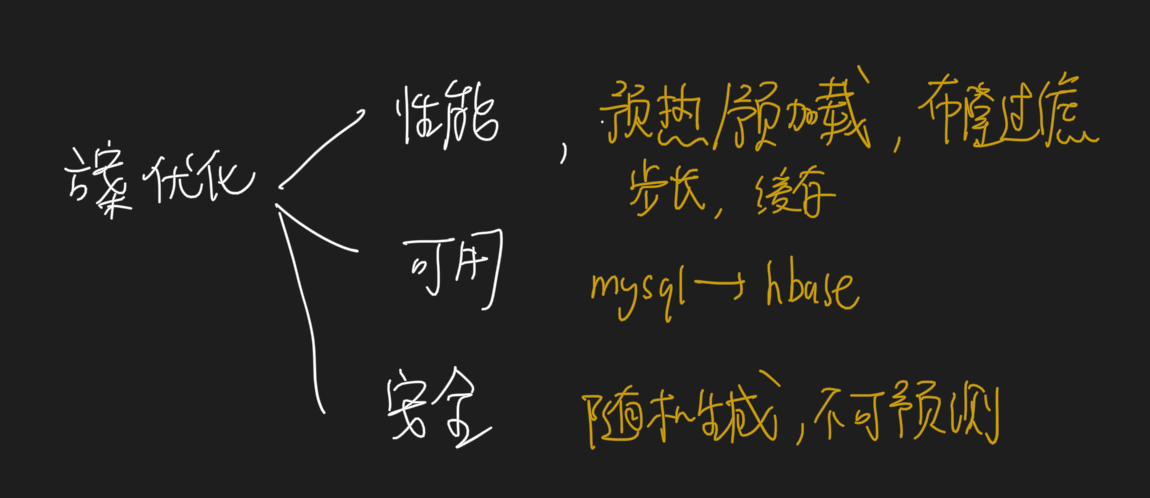 方案优化
性能, 预热/预加载, 布隆过滤
步长, 缓存
可用 mysql→hbase
安全 随机生成, 不可预测